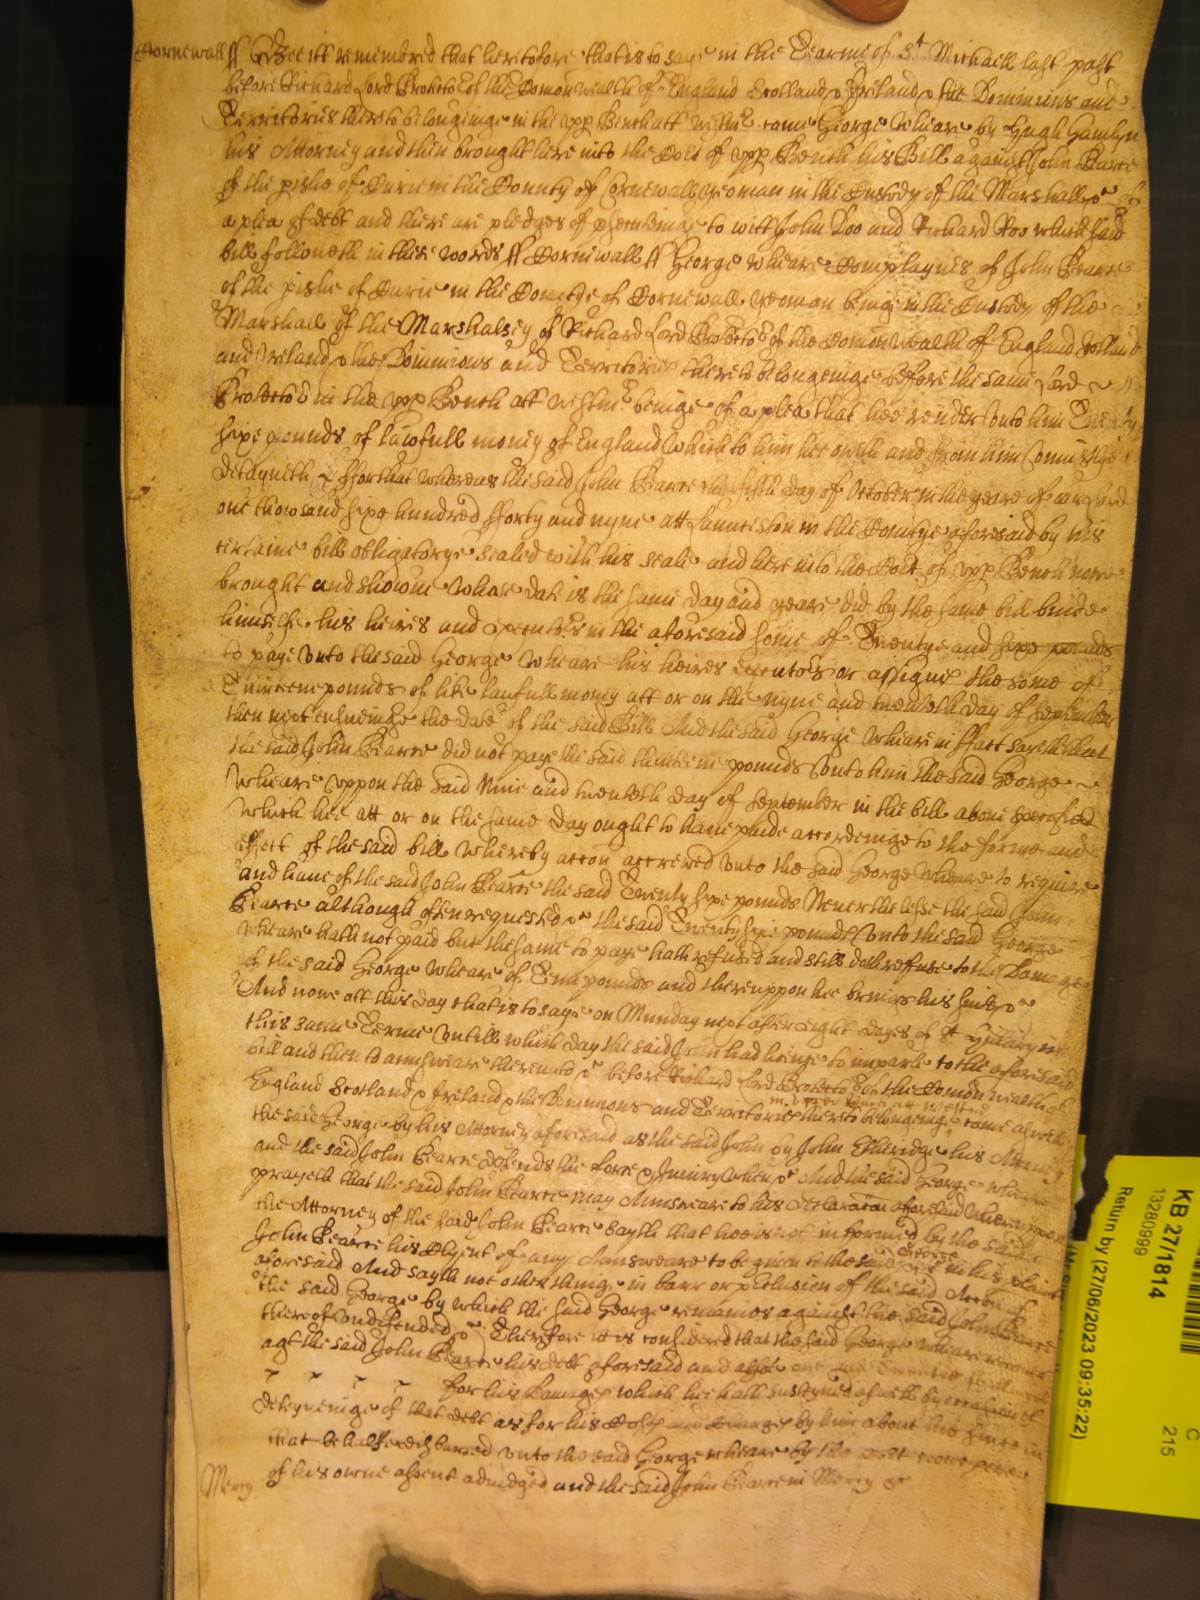 Cornewall ff Bee itt remembred that heretofore that is to saye in the Tearme of St Michaell last past
before Richard Lord Protector of the Comonwealth of England Scotland & Ireland & the Dominions and
Territories thereto belonginge in the upp Bench att Westmr came George Wheare by Hugh Hamlyn
his Attorney and then brought here into the Cort of upp Bench his Bill against John Pearce
of the pishe of Curie in the County of Cornewall yeoman in the Custody of the Marshall &c of
a plea of debt and there are pledges of psecutinge to witt John Doo and Richard Roo which said
bill followeth in these words ff Cornewall ff George Wheare Complaynes of John Pearce
of the pishe of Curie in the Countye of Cornewall yeoman beinge in the Custody of the
Marshall of the Marshalsey of Richard Lord Protector of the Comonwealth of England Scotland
and Ireland & the Dominions and Territories thereto belongeinge before the same Lord
Protector in the upp Bench att Westmr beinge of a plea that hee render unto him Twenty
sixe pounds of lawfull money of England which to him hee oweth and from him uniustlye
detayneth & ffor that whereas the said John Pearce the fifth day of October in the yeare of our Lord
one thowsand sixe hundred fforty and nyne att Launceston in the Countye aforesaid by his
certaine bill obligatorye sealed with his seale and here into the Cort of upp Bench nowe
brought and shewne whose date is the same day and yeare did by the same bill binde
himselfe his heires and executors in the aforesaid some of Twentye and sixe pounds
to paye unto the said George Wheare his heires executors or assignes the some of
Thirteene pounds of like lawfull money att or on the nyne and twenteth day of September
then next ensueinge the date of the said Bill And the said George Wheare in ffact saveth that
the said John Pearce did not paye the said thirteene pounds unto him the said George
Wheare uppon the said Nine and twenteth day of September in the bill above specified
which hee att or on the same day ought to have paide accordeinge to the forme and
effect of the said bill whereby accon accrewed unto the said George Wheare to require
and have of the said John Pearce the said Twenty sixe pounds Neverthelesse the said John
Pearce although often requested &c the said Twenty sixe pounds unto the said George
Wheare hath not paid but the same to paye hath refused and still doth refuse to the Damage
of the said George Wheare of Tenn pounds and thereuppon hee brings his suite &c
And nowe att this day that is to saye on Munday next after eight dayes of St Hyllary in
this same Terme untill which day the said John had licence to imparle to the aforesaid
bill and then to answeare thereunto &c before Richard Lord Protector of the Comonwealth of
England Scotland & Ireland & the Dominions and Territories thereto belongeinge came as well
in upper Bench att Westmr
the said George by his Attorney aforesaid as the said John by John Etheridge his Attorney
and the said John Pearce defends the force & Iniury when &c And the said George Wheare
prayeth that the said John Pearce may Answeare to his declaracon aforesaid whereuppon
the Attorney of the said John Pearce sayth that hee is not informed by the said
John Pearce his Clyent of any Answeare to be given to the said George in his plaint
aforesaid And sayth not other thinge in barr or preclusion of the said Accon of
the said George by which the said George remaines against the said John Pearce
thereof undefended &c Therefore itt is considered that the said George Wheare recover
agt the said John Pearce his debt aforesaid and alsoe
for his Damages which he hath susteyned as well by occasion of
deteyneinge of that debt as for his Costs and Charges by him about his suite in
that behalfe disbursed unto the said George Wheare by the Cort
of his owne assent adiudged and the said John Pearce in Mercy &c
Mercy
KB 27/1814
13280999
Return by (27/06/2023 09:35:22)
C
215